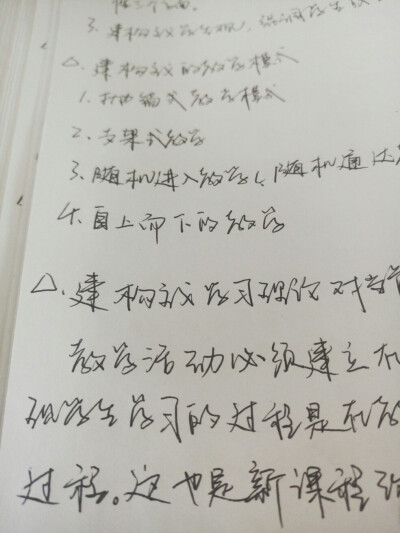 性三个方面。
3. 建构主义学生观，强调学生
△. 建构主义的教学模式
1. 抛锚式教学模式
2. 支架式教学
3. 随机进入教学（随机通达
4. 自上而下的教学
△. 建构主义学习理论对
教学活动必须建立
学生学习的过程是
过程。这也是新课程